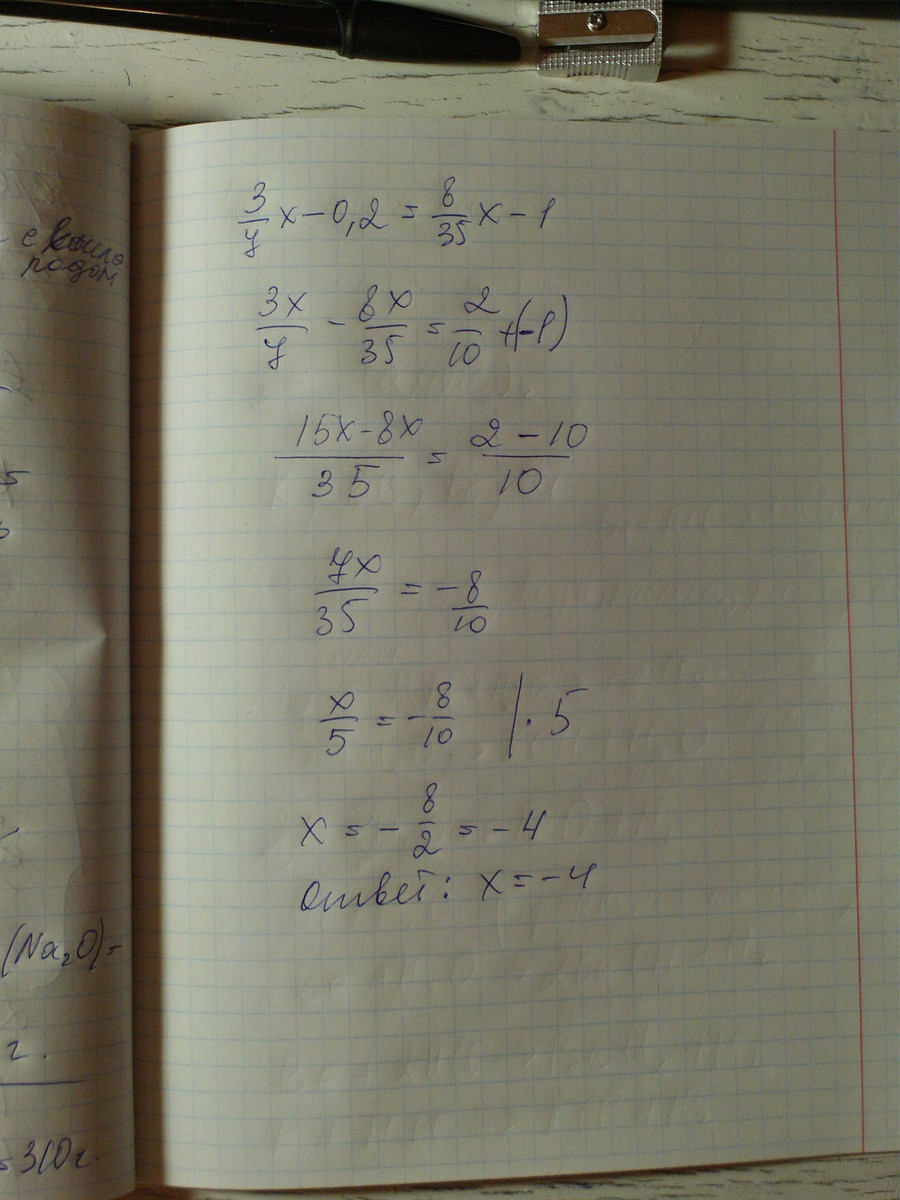 с кисло
родом
(Na₂O)=
г.
=310г.
3/7 x - 0,2 = 8/35 x - 1
3x/7 - 8x/35 = 2/10 + (-1)
15x-8x/35 = 2-10/10
7x/35 = -8/10
x/5 = -8/10 | · 5
x = -8/2 = -4
ответ: x = -4